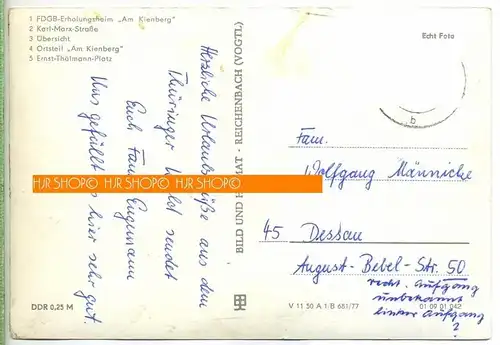 1 FDGB-Erholungsheim „Am Kienberg"
2 Karl-Marx-Straße
3 Übersicht
4 Ortsteil „Am Kienberg"
5 Ernst-Thälmann-Platz
Echt Foto
b
Herzliche Urlaubsgrüße aus dem
Thüringer Wald sendet
Euch Fam.
Uns gefällt es hier sehr gut.
HJR SHOP© HJR SHOP© HJR SHOP©
BILD UND HEIMAT · REICHENBACH (VOGTL)
Fam.
Wolfgang Männicke
45 Dessau
August-Bebel-Str. 50
recht. Aufgang
unbekannt
linker Aufgang
?
DDR 0,25 M
V 11 50 A 1/B 681/77
01 09 01 042